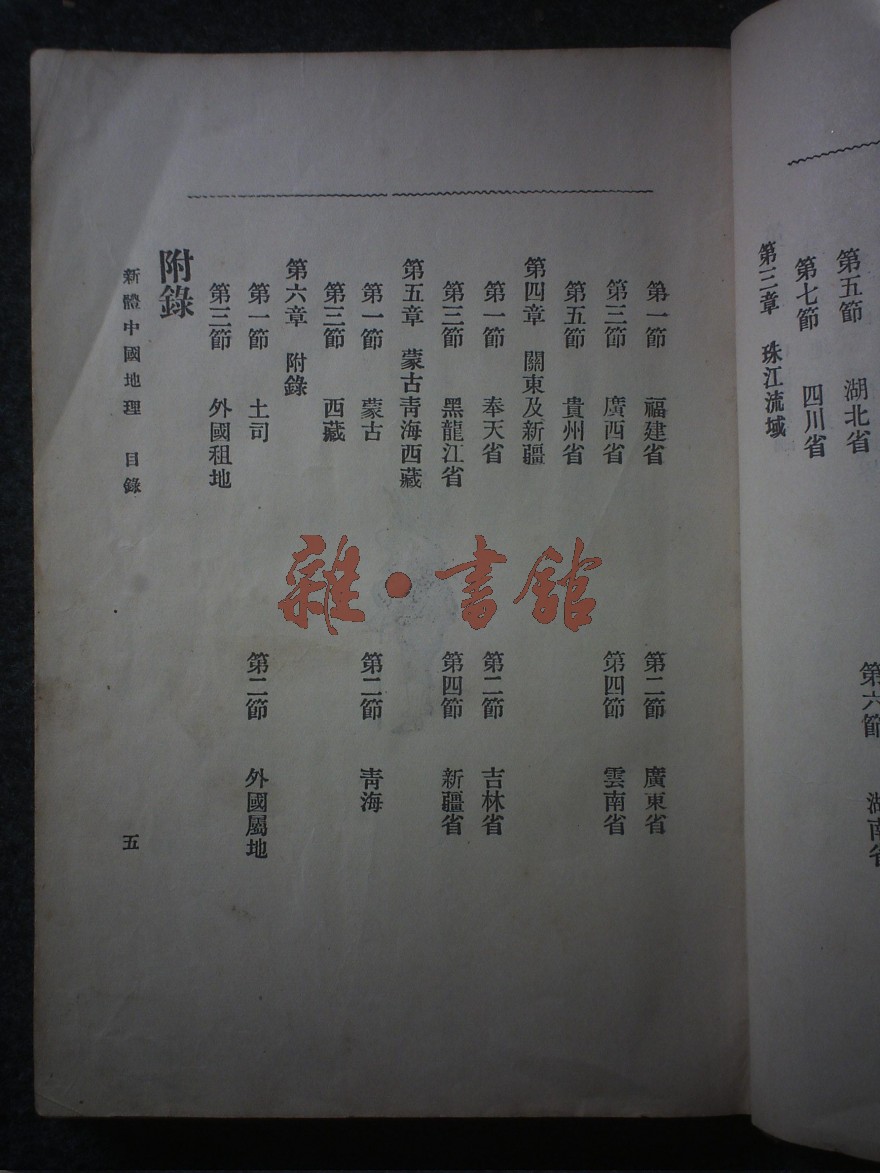 第五節　湖北省
第六節　湖南省
第七節　四川省
第三章　珠江流域
第一節　福建省　第二節　廣東省
第三節　廣西省　第四節　雲南省
第五節　貴州省
第四章　關東及新疆
第一節　奉天省　第二節　吉林省
第三節　黑龍江省　第四節　新疆省
第五章　蒙古青海西藏
第一節　蒙古　第二節　青海
第三節　西藏
第六章　附錄
第一節　土司　第二節　外國屬地
第三節　外國租地
附錄
新體中國地理　目錄　五
雜·書館